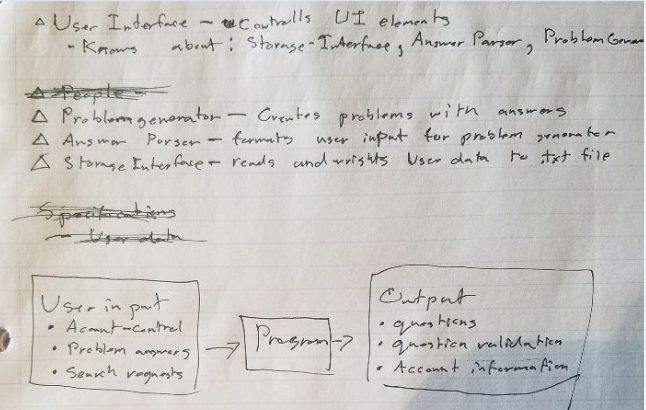 △ User Interface – Controlls UI elements
- Knows about: Storage-Interface, Answer Parser, Problem Gener
△ People -
△ Problem generator – Creates problems with answers
△ Answer Parser – formats user input for problem generator
△ Storage Interface – reads and wrights User data to .txt file
Specifications
- User data
User input
• Acount-control
• Problem answers
• Search requests
→ Program →
Output
• questions
• question validation
• Account information